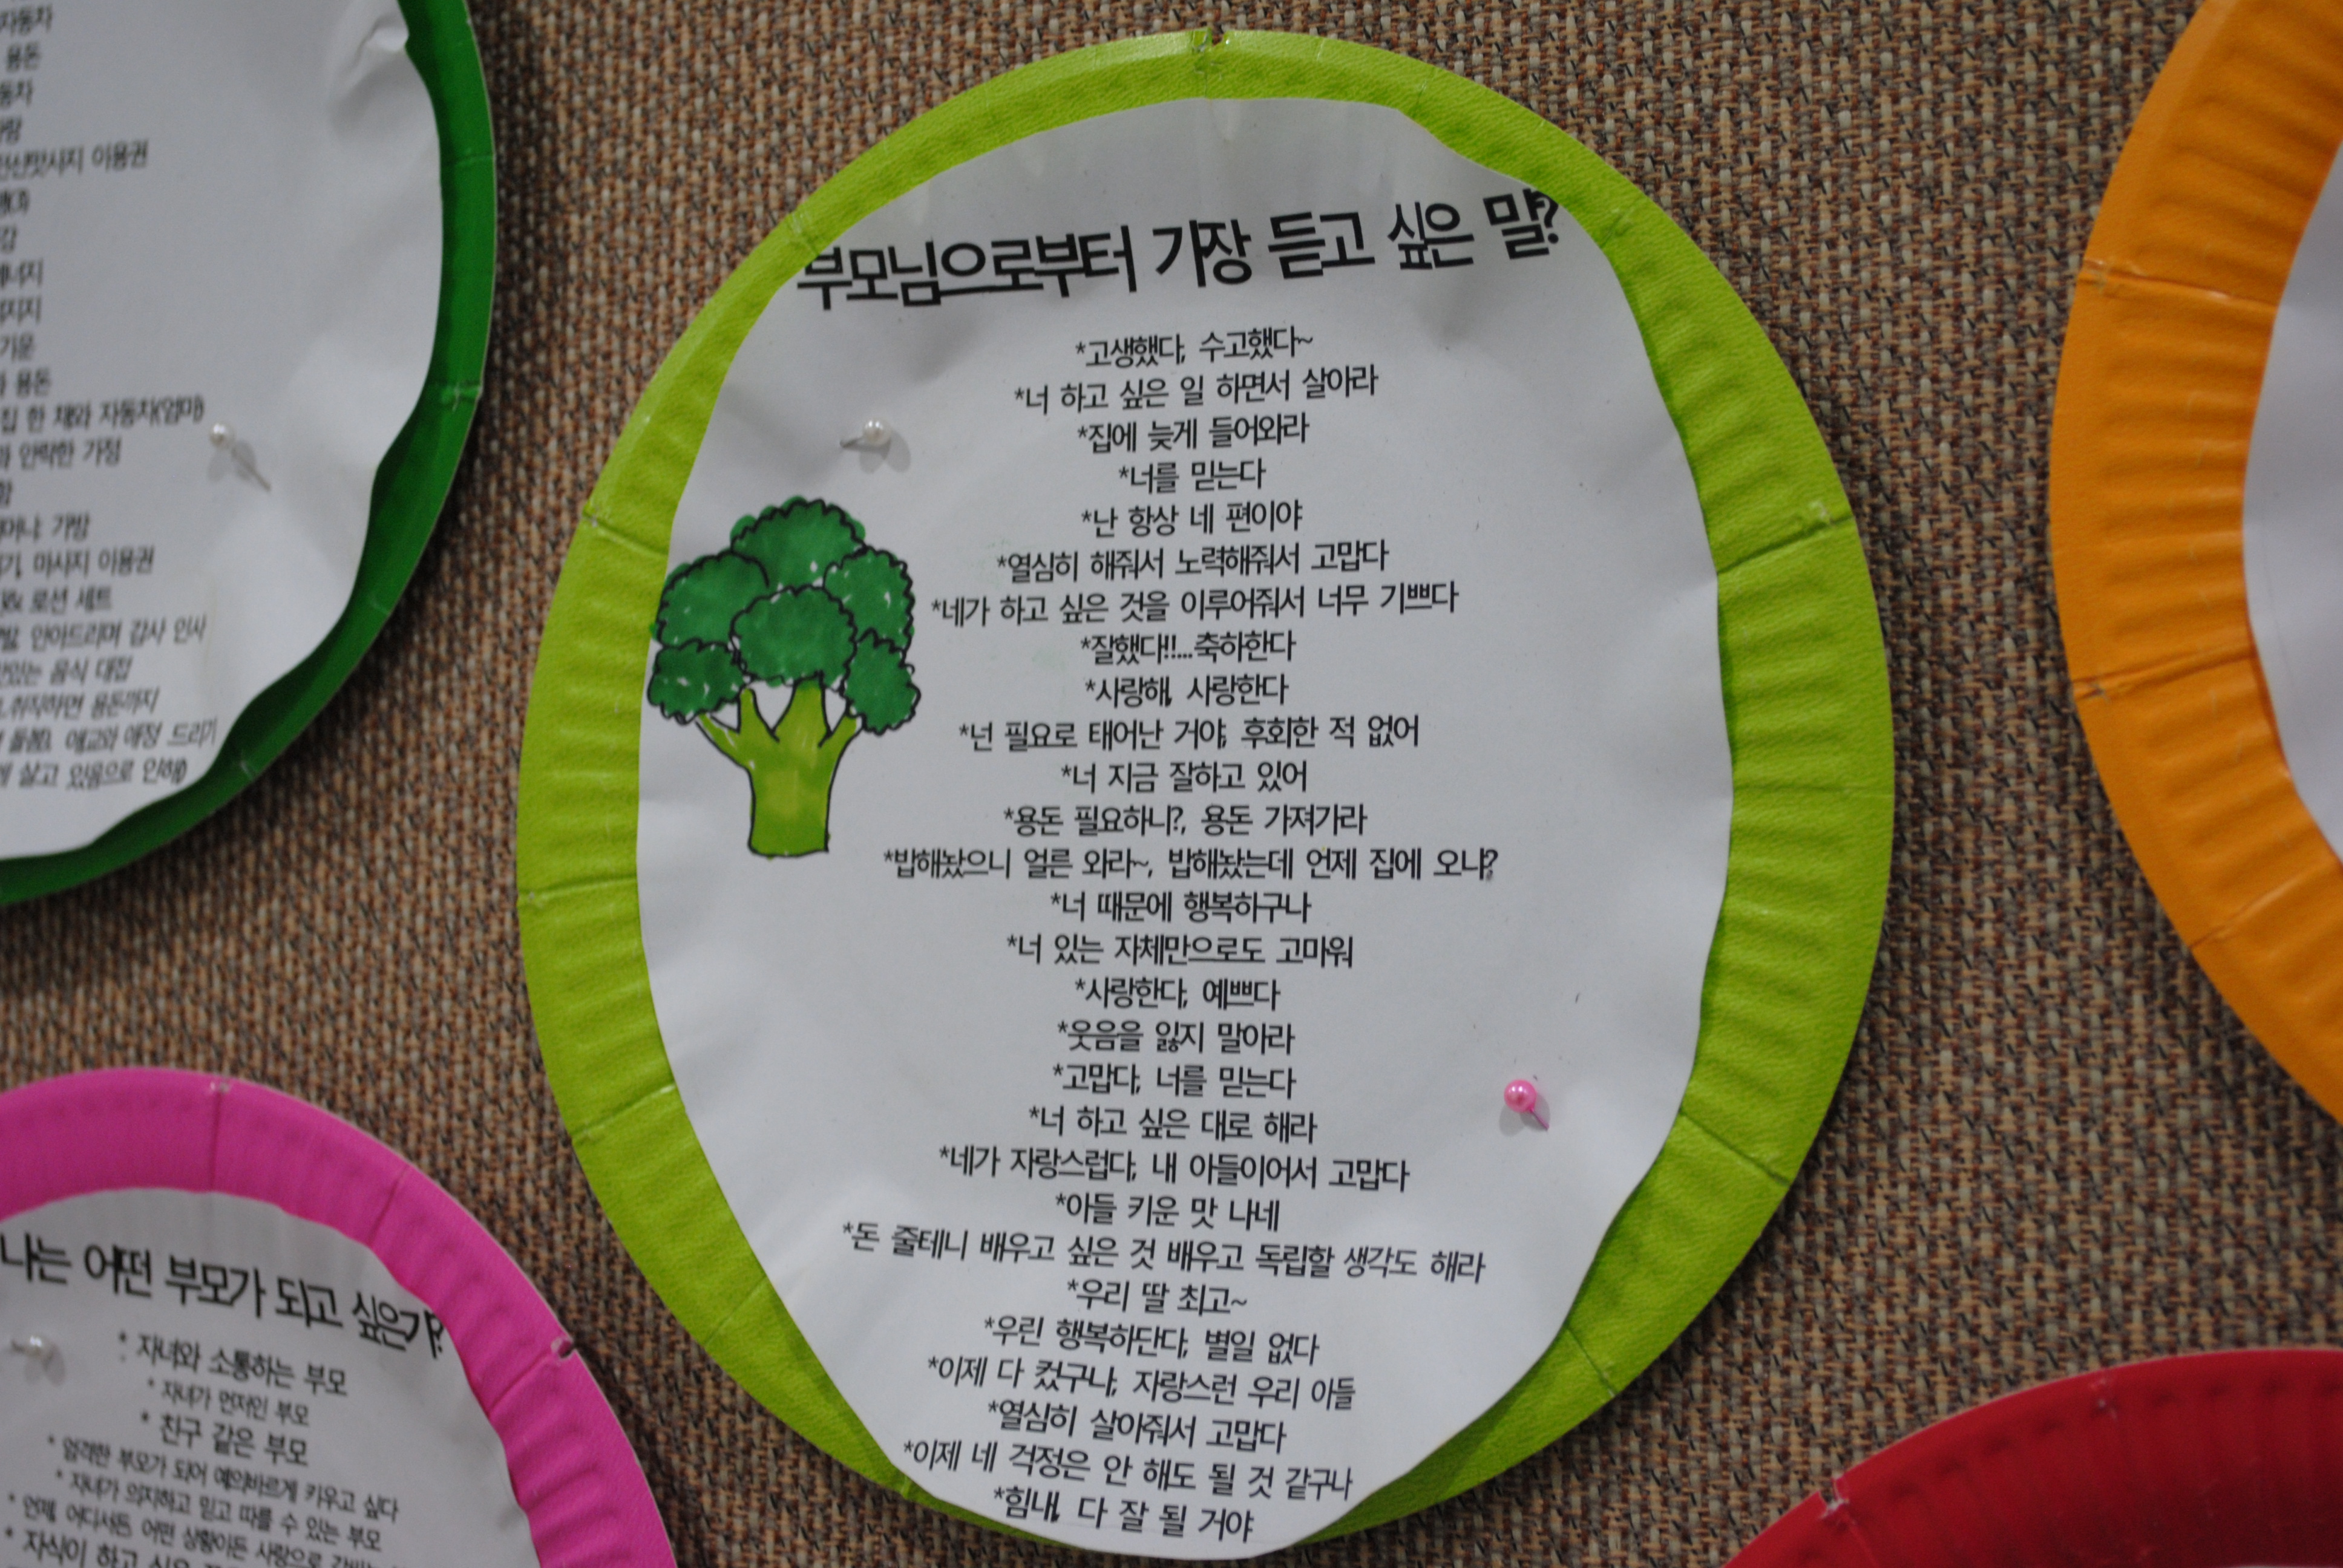 자동차
용돈
이용권
용돈
집 한 채와 자동차(엄마)
안락한 가정
가방
마사지 이용권
로션 세트
안아드리며 감사 인사
맛있는 음식 대접
취직하면 용돈까지
애교와 애정 드리기
살고 있음으로 인해)
부모님으로부터 가장 듣고 싶은 말?
*고생했다, 수고했다~
*너 하고 싶은 일 하면서 살아라
*집에 늦게 들어와라
*너를 믿는다
*난 항상 네 편이야
*열심히 해줘서 노력해줘서 고맙다
*네가 하고 싶은 것을 이루어줘서 너무 기쁘다
*잘했다!!...축하한다
*사랑해, 사랑한다
*넌 필요로 태어난 거야, 후회한 적 없어
*너 지금 잘하고 있어
*용돈 필요하니?, 용돈 가져가라
*밥해놨으니 얼른 와라~, 밥해놨는데 언제 집에 오니?
*너 때문에 행복하구나
*너 있는 자체만으로도 고마워
*사랑한다, 예쁘다
*웃음을 잃지 말아라
*고맙다, 너를 믿는다
*너 하고 싶은 대로 해라
*네가 자랑스럽다, 내 아들이어서 고맙다
*아들 키운 맛 나네
*돈 줄테니 배우고 싶은 것 배우고 독립할 생각도 해라
*우리 딸 최고~
*우린 행복하단다, 별일 없다
*이제 다 컸구나, 자랑스런 우리 아들
*열심히 살아줘서 고맙다
*이제 네 걱정은 안 해도 될 것 같구나
*힘내, 다 잘 될 거야
나는 어떤 부모가 되고 싶은가?
* 자녀와 소통하는 부모
* 자녀가 먼저인 부모
* 친구 같은 부모
* 엄격한 부모가 되어 예의바르게 키우고 싶다
* 자녀가 의지하고 믿고 따를 수 있는 부모
* 언제, 어디서든, 어떤 상황이든 사랑으로
* 자식이 하고 싶은